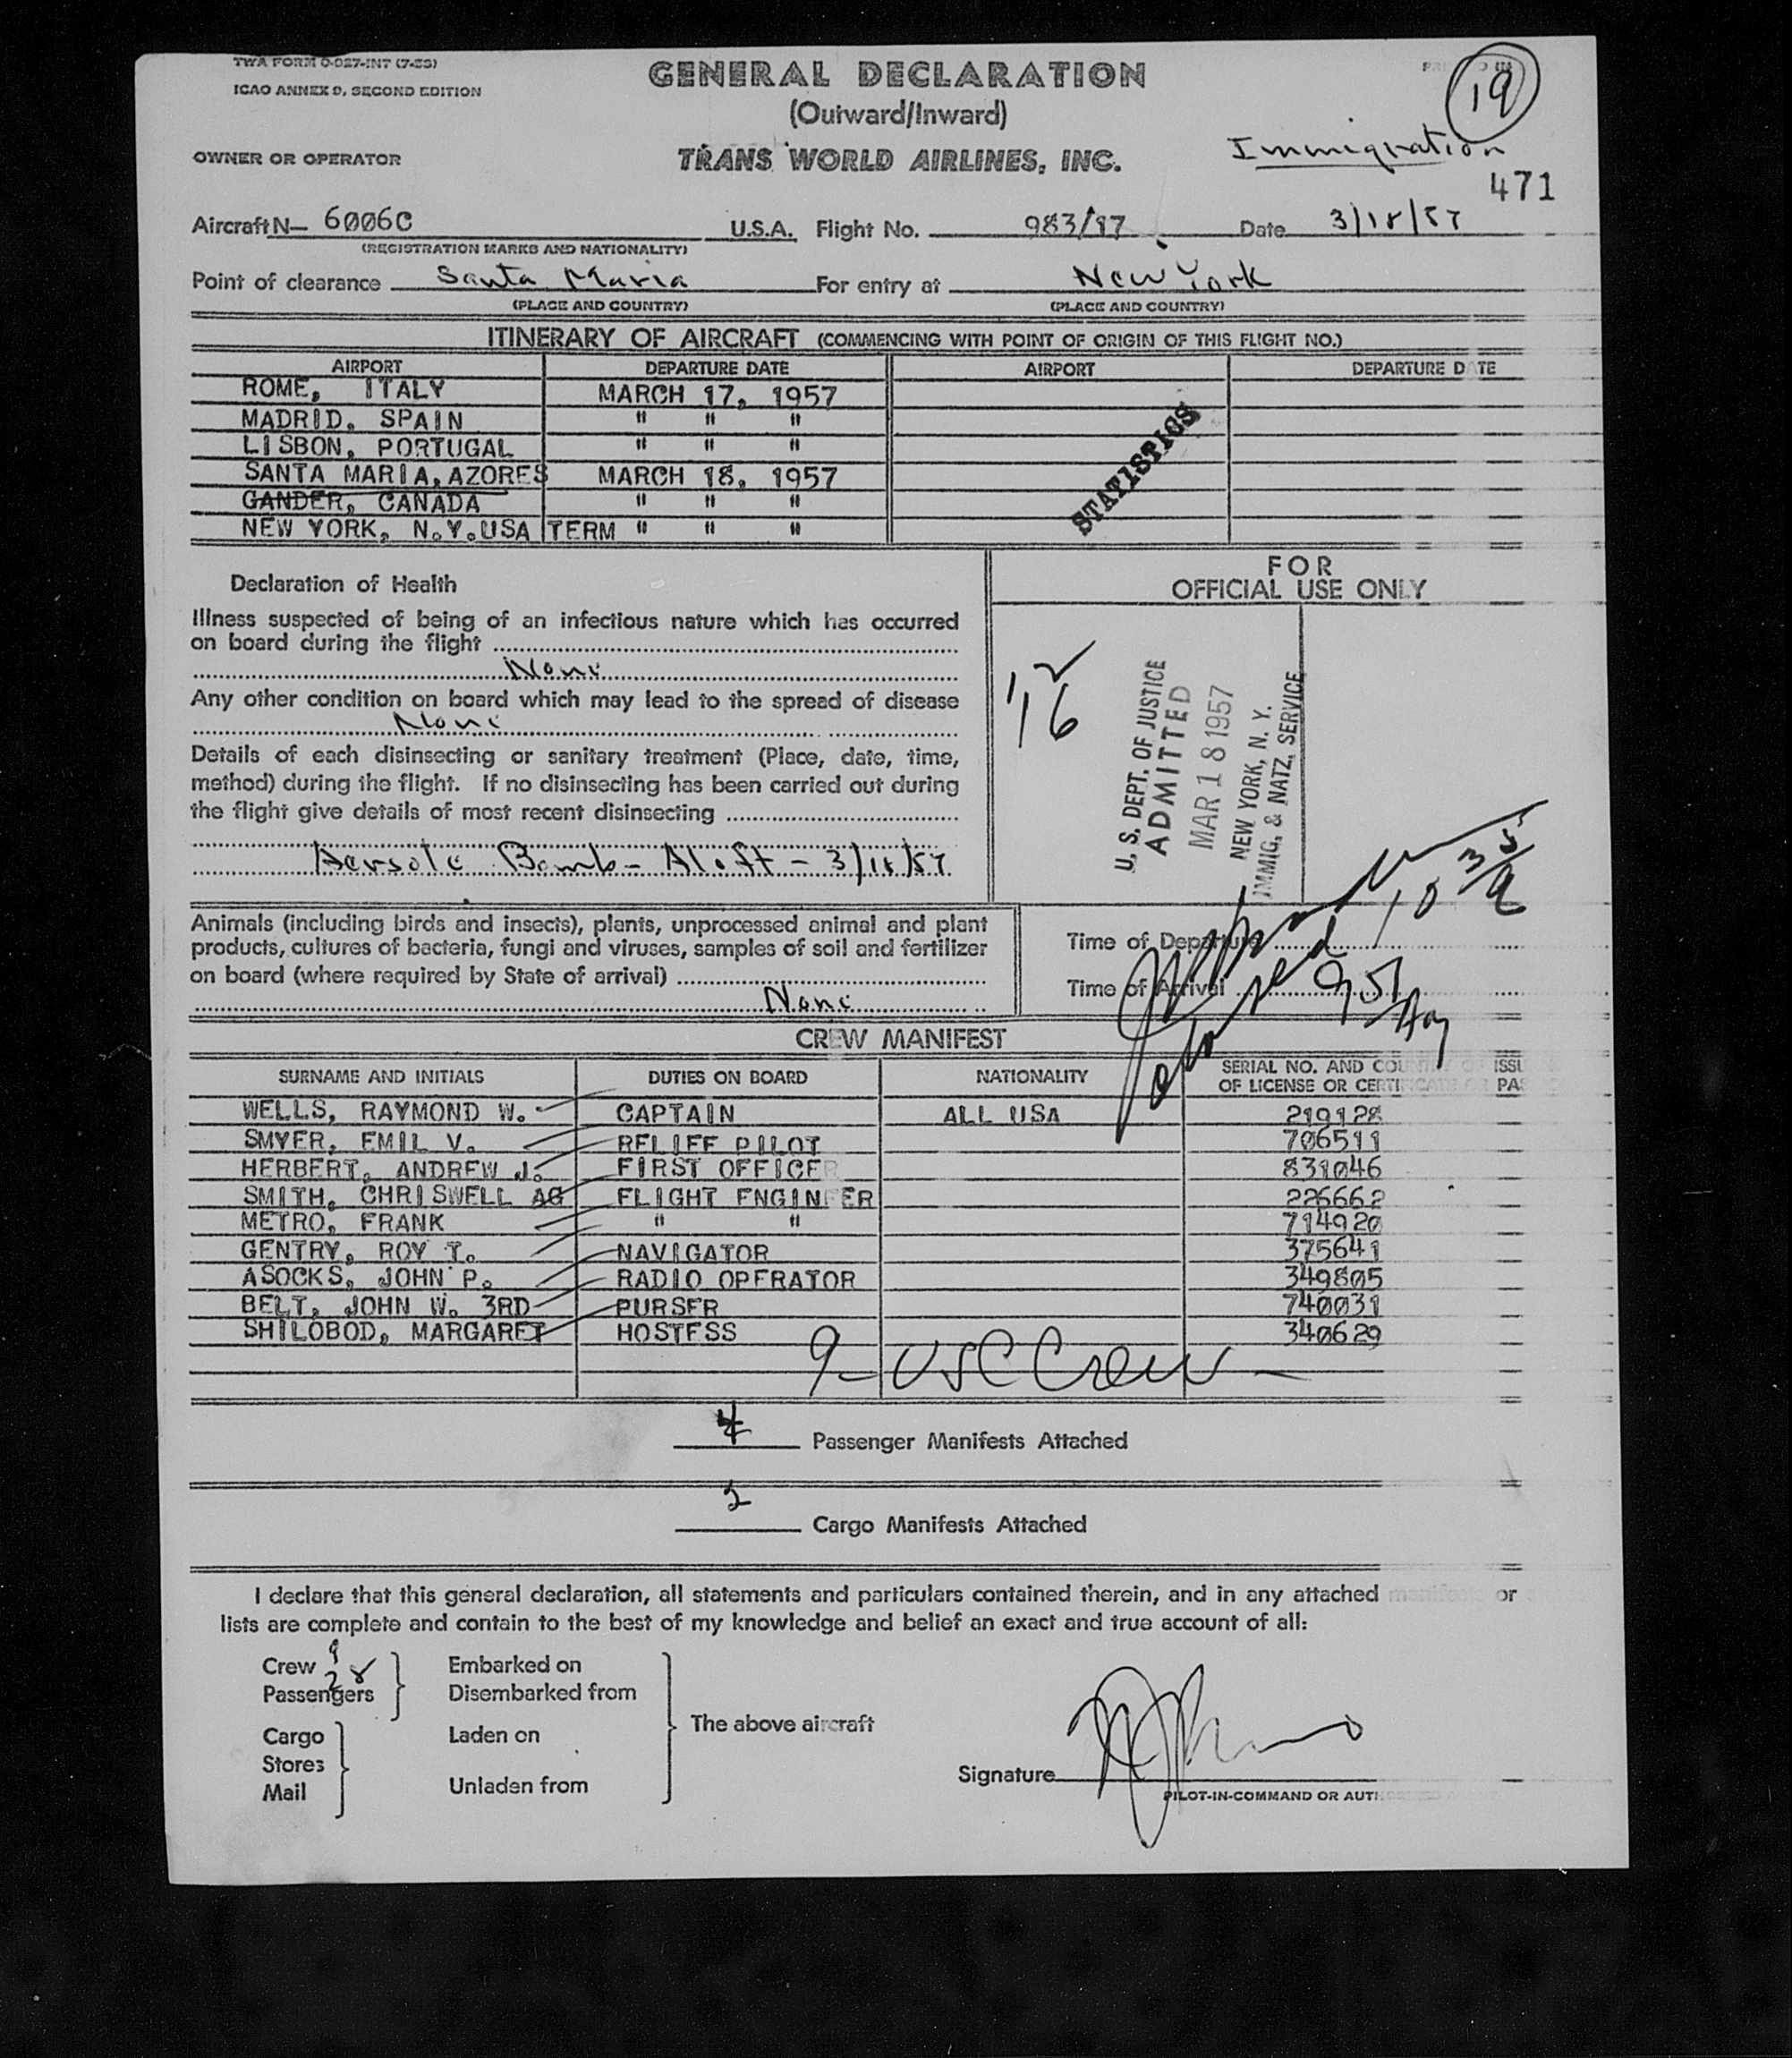 TWA FORM O-027-INT (7-53)
ICAO ANNEX 9, SECOND EDITION
GENERAL DECLARATION
(Outward/Inward)
19
Immigration
OWNER OR OPERATOR
TRANS WORLD AIRLINES, INC.
471
Aircraft N— 6006C U.S.A. Flight No. 983/17 Date 3/18/57
(REGISTRATION MARKS AND NATIONALITY)
Point of clearance Santa Maria For entry at New York
(PLACE AND COUNTRY) (PLACE AND COUNTRY)
ITINERARY OF AIRCRAFT (COMMENCING WITH POINT OF ORIGIN OF THIS FLIGHT NO.)
AIRPORT DEPARTURE DATE AIRPORT DEPARTURE DATE
ROME, ITALY MARCH 17, 1957
MADRID, SPAIN " " "
LISBON, PORTUGAL " " "
SANTA MARIA, AZORES MARCH 18, 1957
GANDER, CANADA " " "
NEW YORK, N.Y.USA TERM " " "
STATISTICS
FOR
OFFICIAL USE ONLY
Declaration of Health
Illness suspected of being of an infectious nature which has occurred
on board during the flight
None
Any other condition on board which may lead to the spread of disease
None
Details of each disinsecting or sanitary treatment (Place, date, time,
method) during the flight. If no disinsecting has been carried out during
the flight give details of most recent disinsecting
Aersole Bomb - Aloft - 3/18/57
U. S. DEPT. OF JUSTICE
ADMITTED
MAR 18 1957
NEW YORK, N. Y.
IMMIG. & NATZ. SERVICE
Animals (including birds and insects), plants, unprocessed animal and plant
products, cultures of bacteria, fungi and viruses, samples of soil and fertilizer
on board (where required by State of arrival)
None
Time of Departure
Time of Arrival
CREW MANIFEST
SURNAME AND INITIALS DUTIES ON BOARD NATIONALITY SERIAL NO. AND COUNTRY OF ISSU
OF LICENSE OR CERTIFICATE OR PA
WELLS, RAYMOND W. CAPTAIN ALL USA 219128
SMYER, EMIL V. RELIEF PILOT 706511
HERBERT, ANDREW J. FIRST OFFICER 831046
SMITH, CHRISWELL AG FLIGHT ENGINEER 226662
METRO, FRANK " " 714920
GENTRY, ROY T. NAVIGATOR 375641
ASOCKS, JOHN P. RADIO OPERATOR 349805
BELT, JOHN W. 3RD PURSER 740031
SHILOBOD, MARGARET HOSTESS 340629
9- USC Crew -
4 Passenger Manifests Attached
2
Cargo Manifests Attached
I declare that this general declaration, all statements and particulars contained therein, and in any attached manifests or
lists are complete and contain to the best of my knowledge and belief an exact and true account of all:
Crew 9 Embarked on
Passengers 28 Disembarked from
The above aircraft
Cargo Laden on
Stores
Mail Unladen from
Signature
PILOT-IN-COMMAND OR AUTH